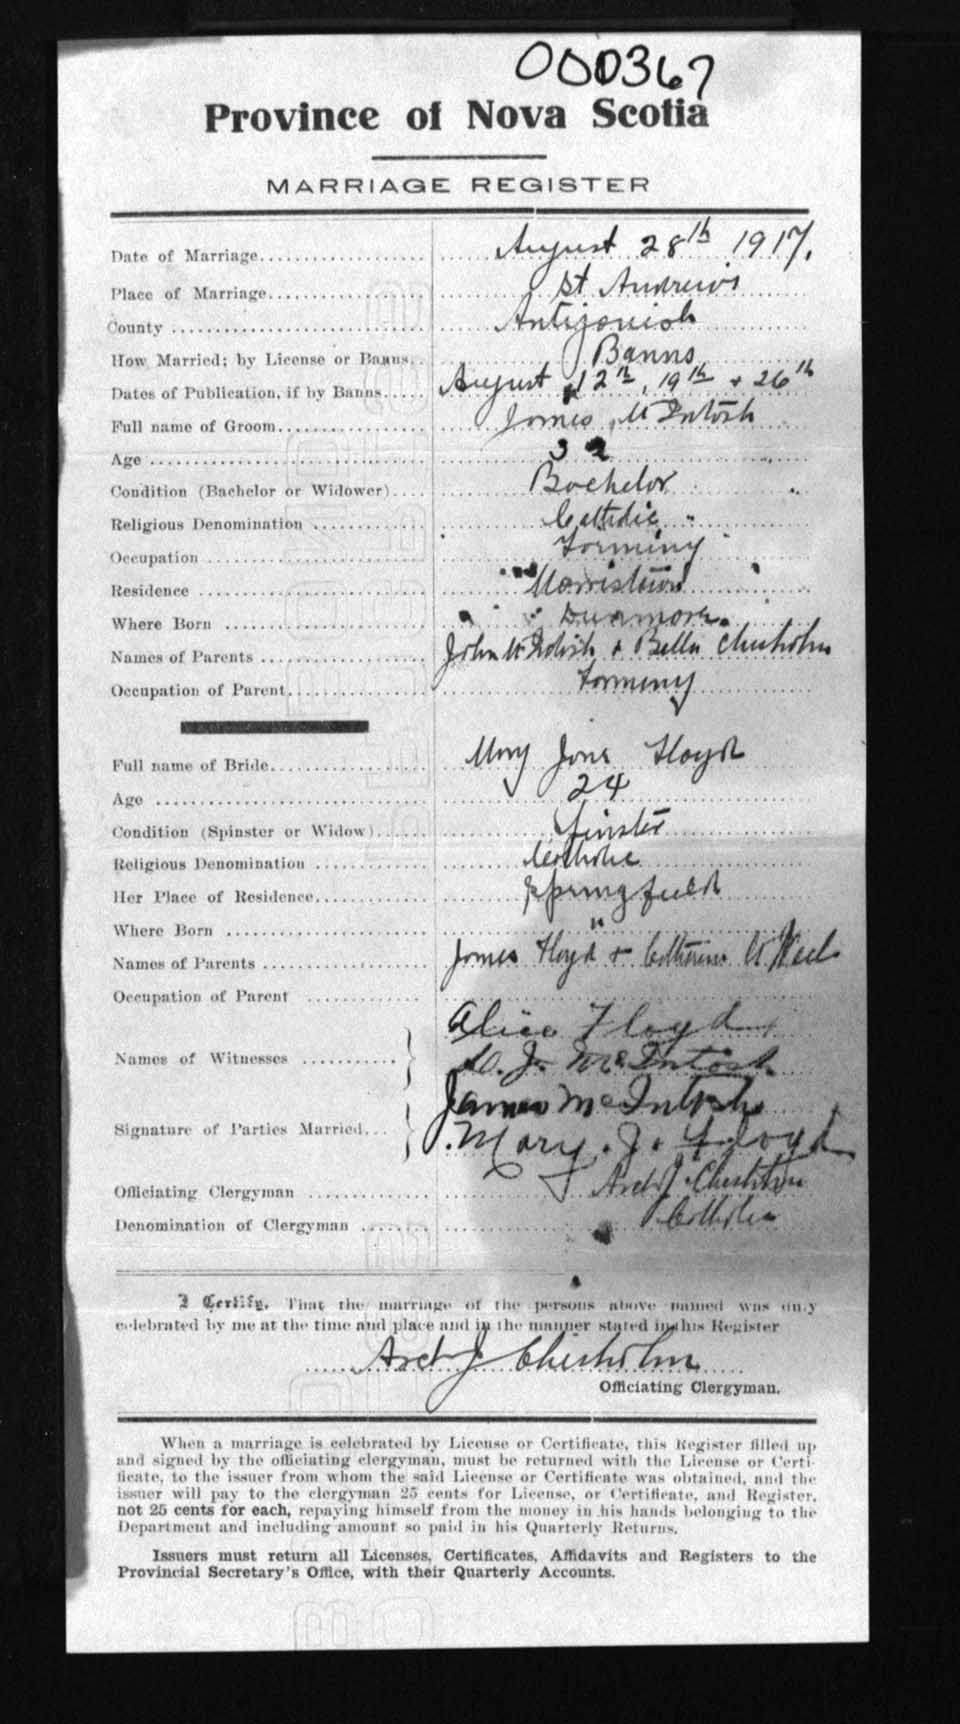 000367
Province of Nova Scotia
MARRIAGE REGISTER
Date of Marriage.................... August 28th 1917.
Place of Marriage................... St Andrews
County ............................. Antigonish
How Married; by License or Banns.. Banns
Dates of Publication, if by Banns..... August 12th, 19th + 26th
Full name of Groom.................. James McIntosh
Age ................................ 32
Condition (Bachelor or Widower).... Bachelor
Religious Denomination ............. Catholic
Occupation ......................... Farming
Residence .......................... Morristown
Where Born ......................... Dunmore
Names of Parents ................... John McIntosh + Bella Chisholm
Occupation of Parent................ Farming
Full name of Bride.................. Mary Jane Floyd
Age ................................ 24
Condition (Spinster or Widow)...... Spinster
Religious Denomination ............. Catholic
Her Place of Residence.............. Springfield
Where Born ......................... "
Names of Parents ................... James Floyd + Catherine
Occupation of Parent ............
Names of Witnesses ........... Alice Floyd
D. J. McIntosh
Signature of Parties Married... James McIntosh
Mary. J. Floyd
Officiating Clergyman ............ Arch J. Chisholm
Denomination of Clergyman ....... Catholic
I Certify, That the marriage of the persons above named was duly
celebrated by me at the time and place and in the manner stated in this Register
Arch J Chisholm
Officiating Clergyman.
When a marriage is celebrated by License or Certificate, this Register filled up
and signed by the officiating clergyman, must be returned with the License or Certi-
ficate, to the issuer from whom the said License or Certificate was obtained, and the
issuer will pay to the clergyman 25 cents for License, or Certificate, and Register,
not 25 cents for each, repaying himself from the money in his hands belonging to the
Department and including amount so paid in his Quarterly Returns.
Issuers must return all Licenses, Certificates, Affidavits and Registers to the
Provincial Secretary's Office, with their Quarterly Accounts.